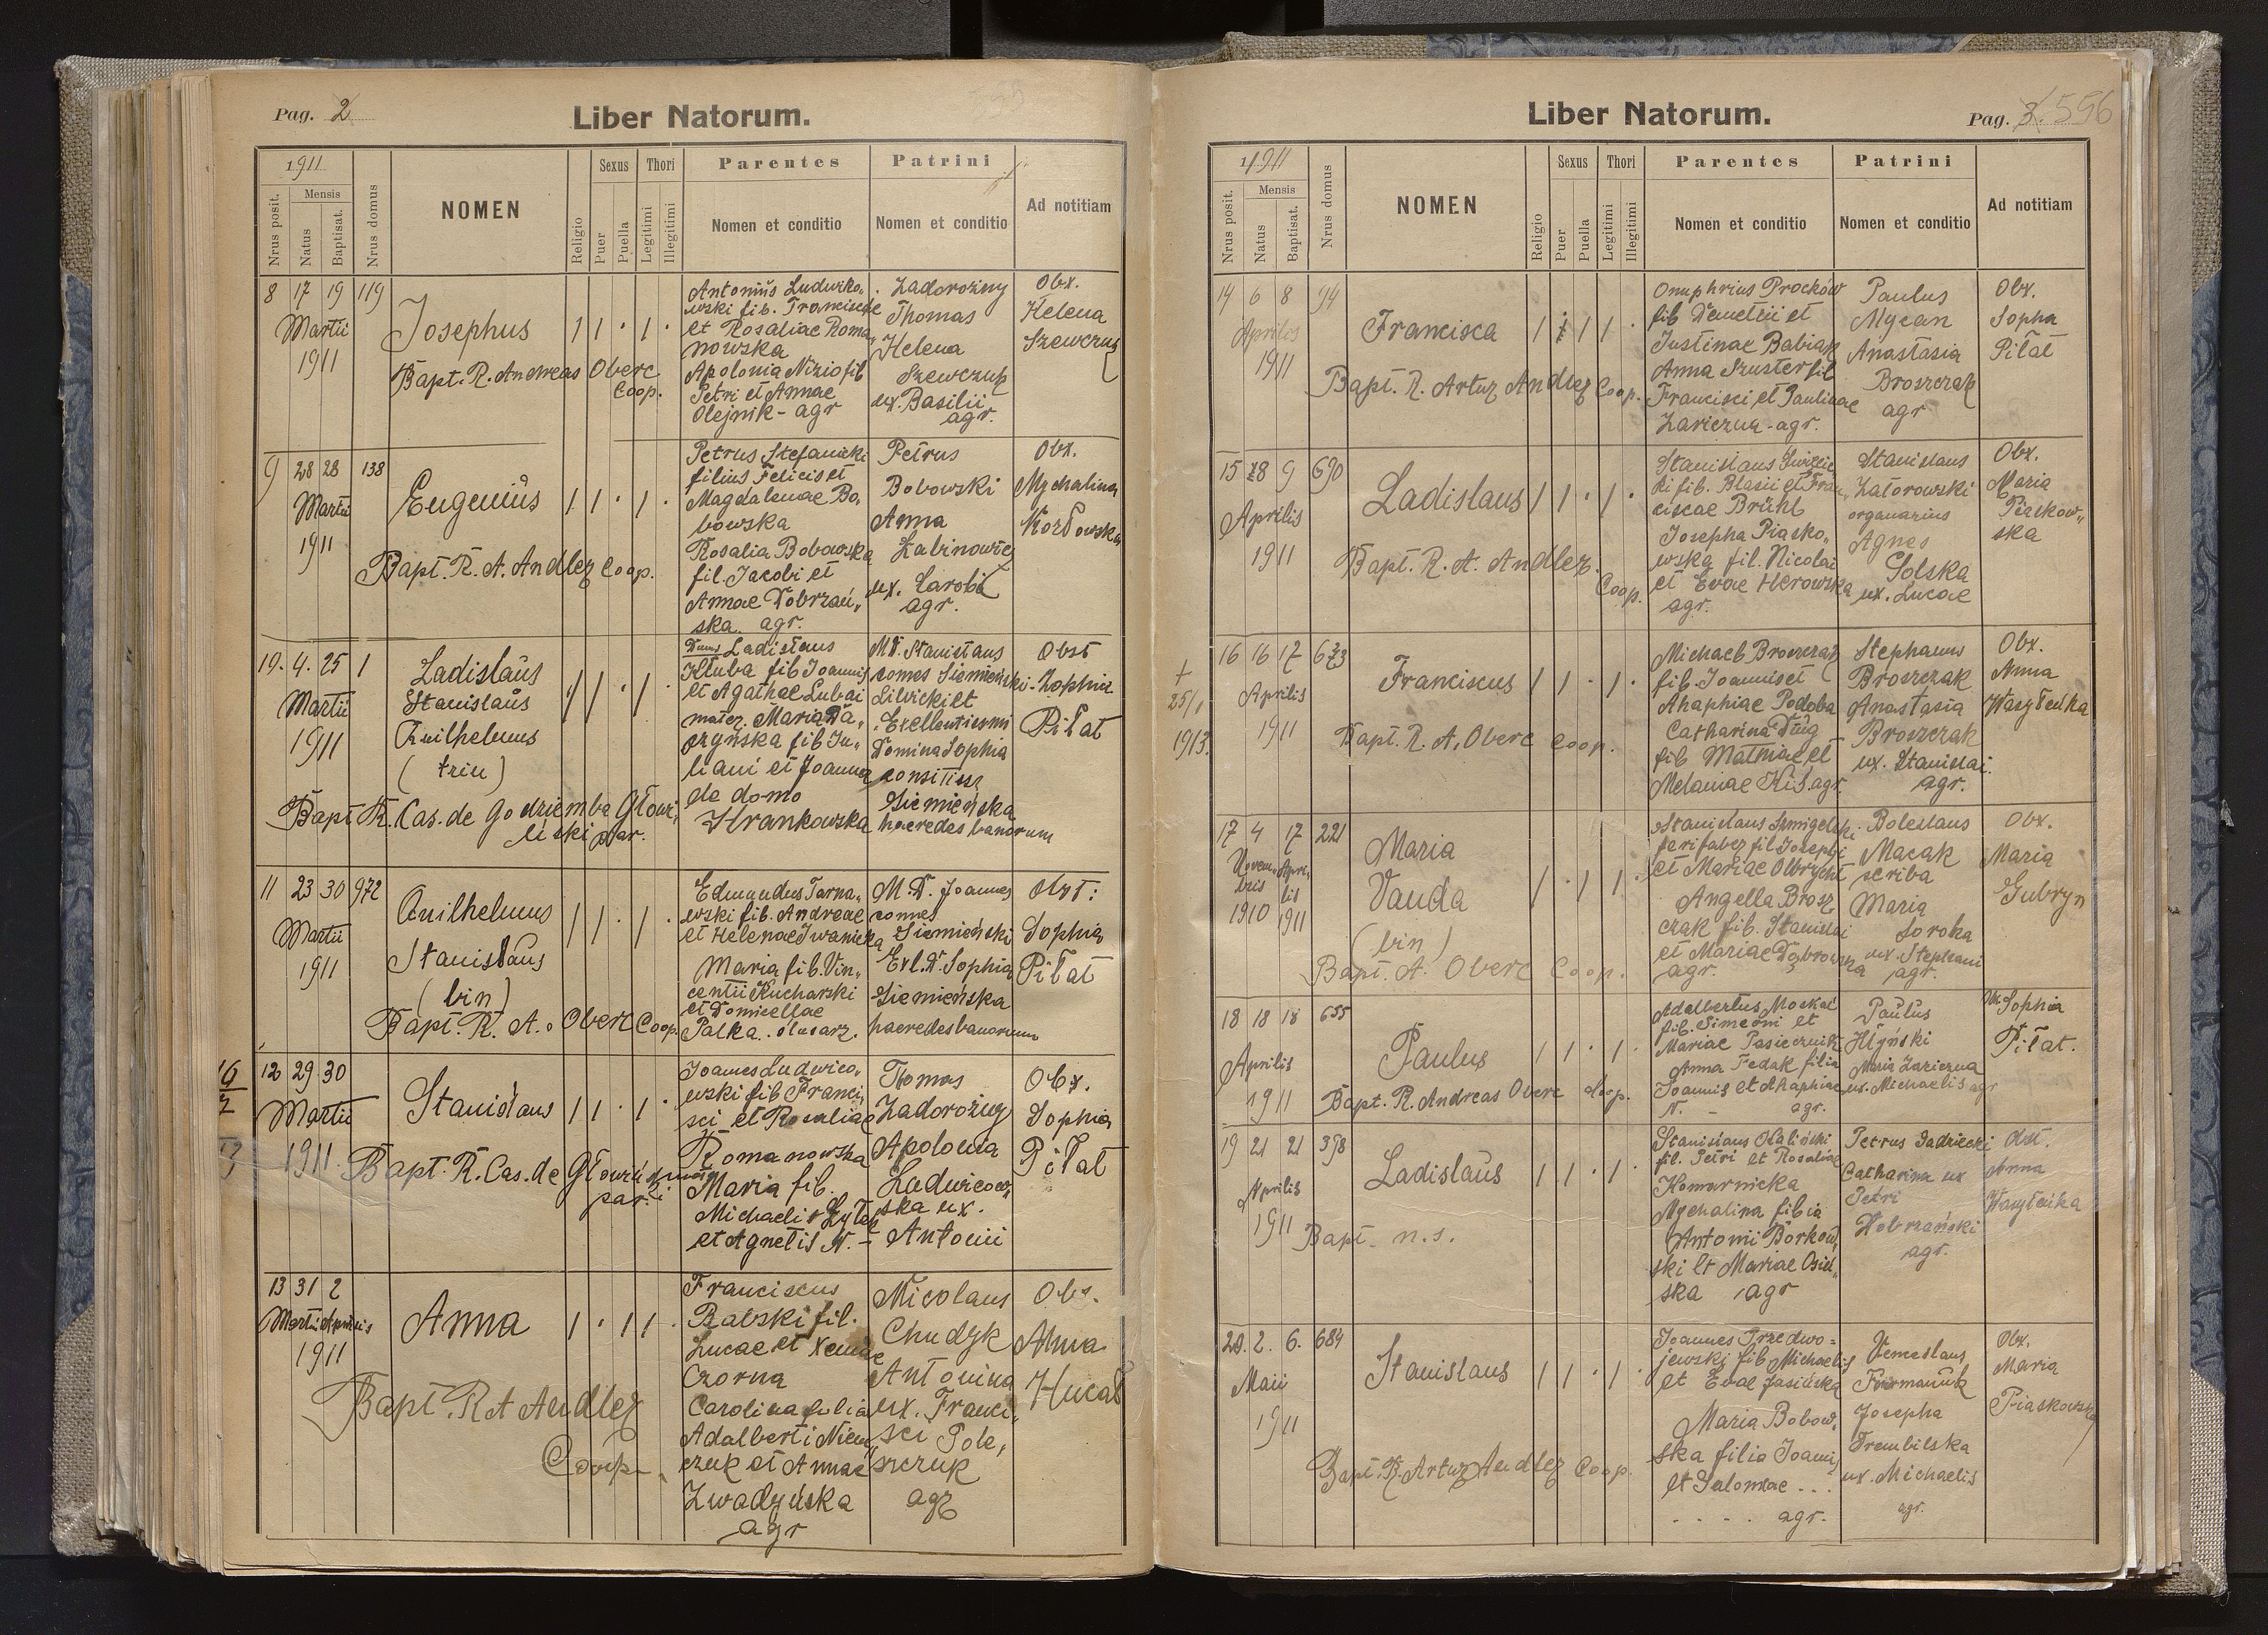 Pag. 2
Liber Natorum.
1911
Nrus posit.
Mensis
Natus
Baptisat.
Nrus domus
NOMEN
Religio
Sexus
Puer
Puella
Thori
Legitimi
Illegitimi
Parentes
Nomen et conditio
Patrini
Nomen et conditio
Ad notitiam
8 17 19 119
Martii
1911
Josephus
1 1 . 1 .
Bapt. R. Andreas Oberc
Coop.
Antonius Ludwiko„
wski fil. Francisci
et Rosaliae Roma„
nowska
Apolonia Nizio fil
Petri et Annae
Olejnik - agr
Zadorożny
Thomas
Helena
Szewczuk
ux. Basilii
agr.
Obx.
Helena
Szewczuk
9 28 28 138
Martii
1911
Eugenius
1 1 . 1 .
Bapt. R. A. Andlez Coop.
Petrus Stefanicki
filius Felicis et
Magdalenae Bo„
bowska
Rosalia Bobowska
fil. Jacobi et
Annae Dobrzań„
ska. agr.
Petrus
Bobowski
Anna
Łabinowicz
ux. Caroli
agr.
Obx.
Mychalina
Kozłowska
10. 4. 25 1
Martii
1911
Ladislaus
Stanislaus
Guilhelmus
(trin)
1 1 . 1 .
Bapt R. Cas. de Godziemba Głowi„
ński par.
Ladislaus
Kłuba fil Joannis
et Agathae Lubai
mater Maria Da„
fil Ju„
liani et Joanna
de domo
Hrankowska
M. D. Stanislaus
comes Siemieński-
Lilvicki et
Excellentissimi
Domina Sophia
comitissa
Siemieńska
haeredes bonorum
Obst
Zophia
Piłat
11 23 30 972
Martii
1911
Guilhelmus
Stanislaus
(bin)
1 1 . 1 .
Bapt. R. A. Oberc Coop.
Edmundus Tarna„
wski fil. Andreae
et Helenae Iwanicka
Maria fil. Vin„
centii Kucharski
et Domicellae
Pałka. ślusarz.
M. D. Joannes
comes
Siemieński
Exl. D. Sophia
Siemieńska
haeredes bonorum
Obst:
Sophia
Piłat
12 29 30
Martii
1911
Stanislaus
1 1 . 1 .
Bapt. R. Cas. de Głowiński
par.
Joannes Ludwico„
wski fil Franci„
sci et Rosaliae
Romanowska
Maria fil.
Michaelis
et Agnetis N. -
Thomas
Zadorożny
Apolonia
Ludwicow„
ska ux.
Antonii
Obx.
Sophia
Piłat
13 31 2
Martii Aprilis
1911
Anna
1 . 1 1 .
Bapt. R A Andlez
Coop.
Franciscus
Rabski fil.
Lucae et Xeniae
Czorna
Carolina filia
Adalberti Niem„
czuk et Annae
Zwadyńska
agr
Nicolaus
Chudyk
Antonina
ux. Franci„
sci Pole„
szczuk
agr
Obs.
Anna
Hucał
Liber Natorum.
Pag. 3. 556
1911
Nrus posit.
Mensis
Natus
Baptisat.
Nrus domus
NOMEN
Religio
Sexus
Puer
Puella
Thori
Legitimi
Illegitimi
Parentes
Nomen et conditio
Patrini
Nomen et conditio
Ad notitiam
14 6 8 94
Aprilis
1911
Francisca
Bapt. R. Artur Andlez Coop.
Onuphrius Proćków
fil Demetrii et
Justinae Babiak
Anna Szuster fil
Francisci et Paulinae
Zariczna - agr.
Paulus
Mycan
Anastasia
Broszczak
agr
Obx.
Sopha
Piłat
15 8 9 690
Aprilis
1911
Ladislaus
1 1 . 1 .
Bapt. R. A. Andlez.
Coop.
Stanislaus
ki fil. Blasii et Fran„
ciscae Brühl
Josepha Piasko„
wska fil. Nicolai
et Evae Herowska
agr.
Stanislaus
Zatorowski
organarius
Agnes
Solska
ux. Lucae
Obx.
Maria
Piaskow„
ska
+
25/1
1913.
16 16 17 673
Aprilis
1911
Franciscus
1 1 . 1 .
Bapt. R. A. Oberc Coop.
Michael Broszczak
fil. Joannis et
Ahaphiae Podoba
Catharina Dług
fil Mathiae et
Melaniae Kiś agr.
Stephanus
Broszczak
Anastasia
Broszczak
ux. Stanislai.
agr.
Obx.
Anna
Wasyłeńka
17 4 17 221
Novem„ Apri„
bris lis
1910 1911
Maria
Vanda
(bin)
1 . 1 1 .
Bapt. A. Oberc Coop.
Stanislaus Szmigelski
ferifaber fil Josephi
et Mariae Olbrycht
Angella Brosz„
czak fil. Stanislai
et Mariae Dąbrowska
agr.
Boleslaus
Macak
scriba
Maria
Soroka
ux. Stephani
agr.
Obx.
Maria
Gubryn
18 18 18 655
Aprilis
1911
Paulus
1 1 . 1 .
Bapt. R. Andreas Oberc Coop.
Adalbertus Moskal
fil. Simeoni et
Mariae Pasiecznik
Anna Fedak filia
Joannis et Ahaphiae
N. - agr.
Paulus
Hłyński
Maria Zariczna
ux. Michaelis agr
Sophia
Piłat.
19 21 21 398
Aprilis
1911
Ladislaus
1 1 . 1 .
Bapt. n. s.
Stanislaus Kaliński
fil. Petri et Rosaliae
Komarnicka
Mychalina filia
Antonii Borkow„
ski et Mariae Osin„
ska agr
Petrus Sadniecki
Catharina ux
Petri
Dobrzański
agr.
Obst.
Anna
Wasyłeńka
20. 2. 6. 684
Maii
1911
Stanislaus
1 1 . 1 .
Bapt. R. Artur Andlez Coop.
Joannes Przedwo=
jewski fil Michaelis
et Evae Jasińska
Maria Bobow„
ska filia Joanni„
et Salomeae ...
.... agr.
Venceslaus
Furmaniuk
Josepha
Trembilska
ux. Michaelis
agr.
Obx.
Maria
Piaskowska